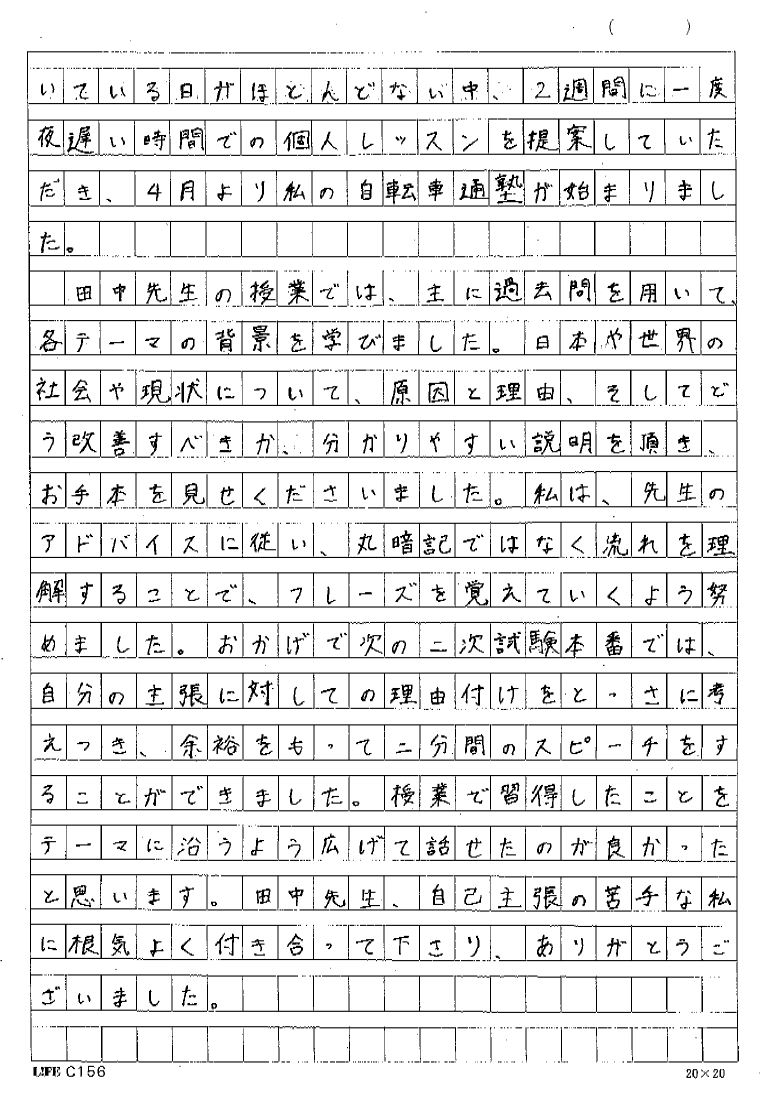 (　　　)
いている日がほとんどない中、2週間に一度
夜遅い時間での個人レッスンを提案していた
だき、4月より私の自転車通塾が始まりまし
た。
　田中先生の授業では、主に過去問を用いて、
各テーマの背景を学びました。日本や世界の
社会や現状について、原因と理由、そしてど
う改善すべきか、分かりやすい説明を頂き、
お手本を見せくださいました。私は、先生の
アドバイスに従い、丸暗記ではなく流れを理
解することで、フレーズを覚えていくよう努
めました。おかげで次の二次試験本番では、
自分の主張に対しての理由付けをとっさに考
えつき、余裕をもって二分間のスピーチをす
ることができました。授業で習得したことを
テーマに沿うよう広げて話せたのが良かった
と思います。田中先生、自己主張の苦手な私
に根気よく付き合って下さり、ありがとうご
ざいました。
LIFE C156
20×20